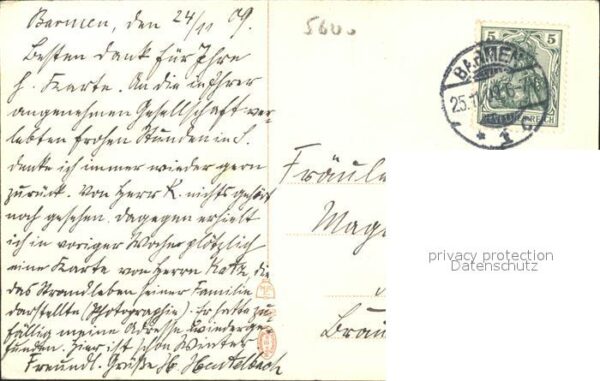 Barmen, den 24/11 09.
Besten Dank für Ihre
h. Karte. An die in Ihrer
angenehmen Gesellschaft ver-
lebten frohen Stunden in S.
denke ich immer wieder gern
zurück. Von Herr K. nichts gehört
noch gesehen. dagegen erhielt
ich in voriger Woche plötzlich
eine Karte von Herrn Katz, die
das Strandleben seiner Familie
darstellte (Photographie). Er hatte zu-
fällig meine Adresse wiederge-
funden. Hier ist schon Winter
Freundl. Grüße H. Heutelbach
5600
5 5
BARMEN
25.11.09.6-7
* 1 c
REICH
Fräule
Mag
Brau
privacy protection
Datenschutz